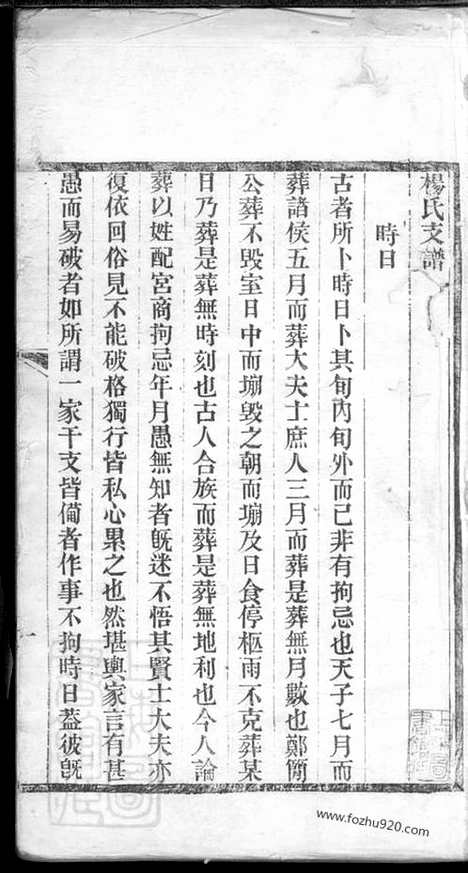 楊氏支譜
時日
古者所卜時日卜其旬內旬外而已非有拘忌也天子七月而
葬諸侯五月而葬大夫士庶人三月而葬是葬無月數也鄭簡
公葬不毀室日中而塴毀之朝而塴及日食停柩雨不克葬某
日乃葬是葬無時刻也古人合族而葬是葬無地利也今人論
葬以姓配宮商拘忌年月愚無知者旣迷不悟其賢士大夫亦
復依回俗見不能破格獨行皆私心累之也然堪輿家言有甚
愚而易破者如所謂一家干支皆備者作事不拘時日葢彼旣
www.fozhu920.com